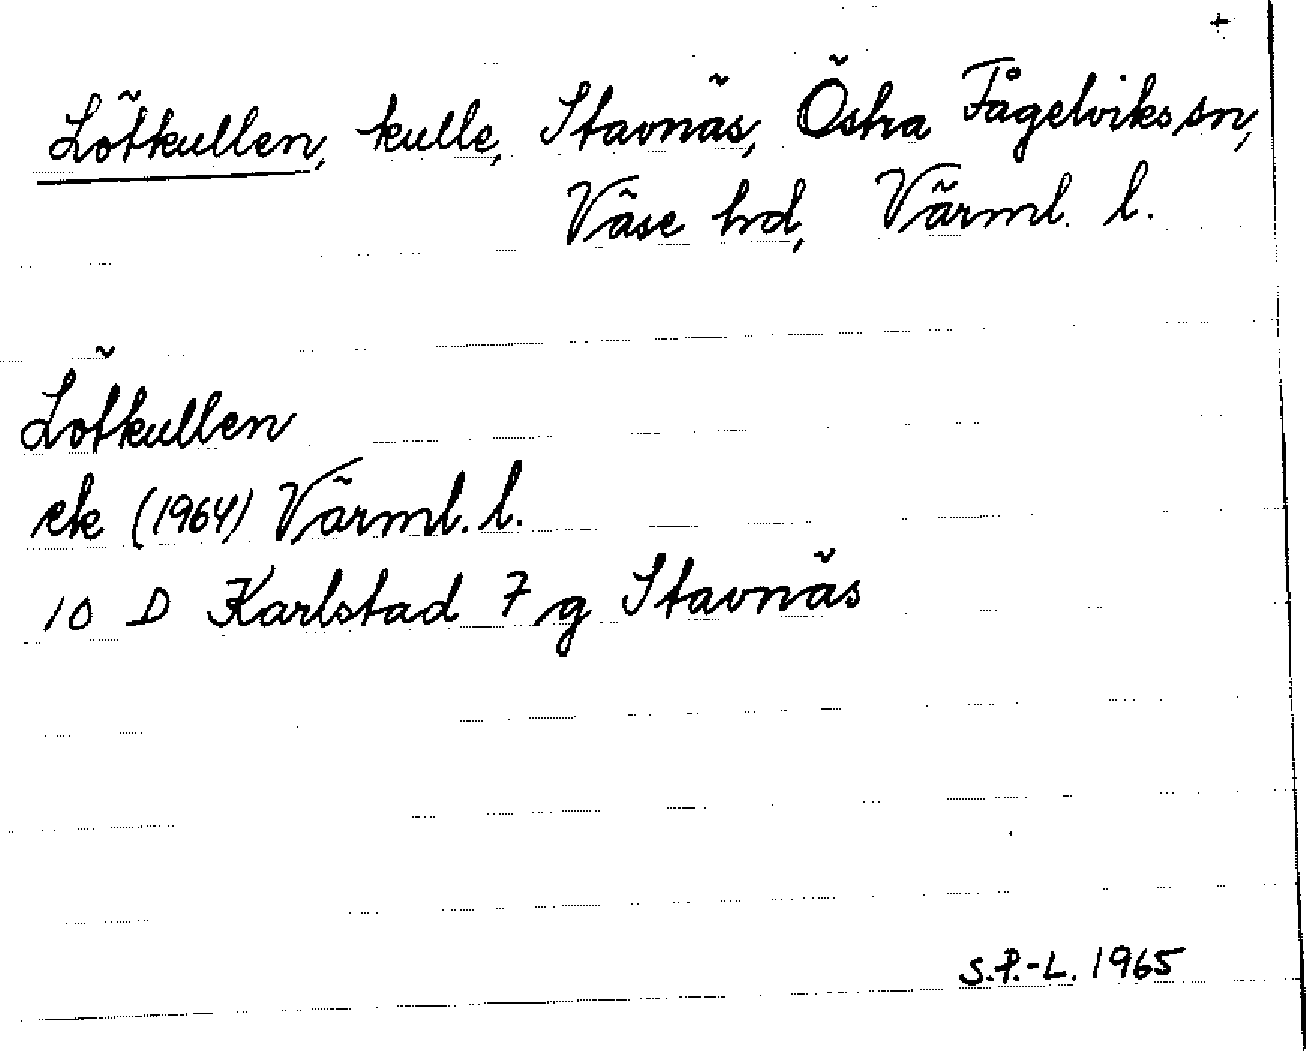 +
Lötkullen, kulle, Stavnäs, Östra Fågelviks sn,
Väse hd, Värml. l.
Lötkullen
ek (1964) Värml. l.
10 D Karlstad 7 g Stavnäs
S.P.-L. 1965